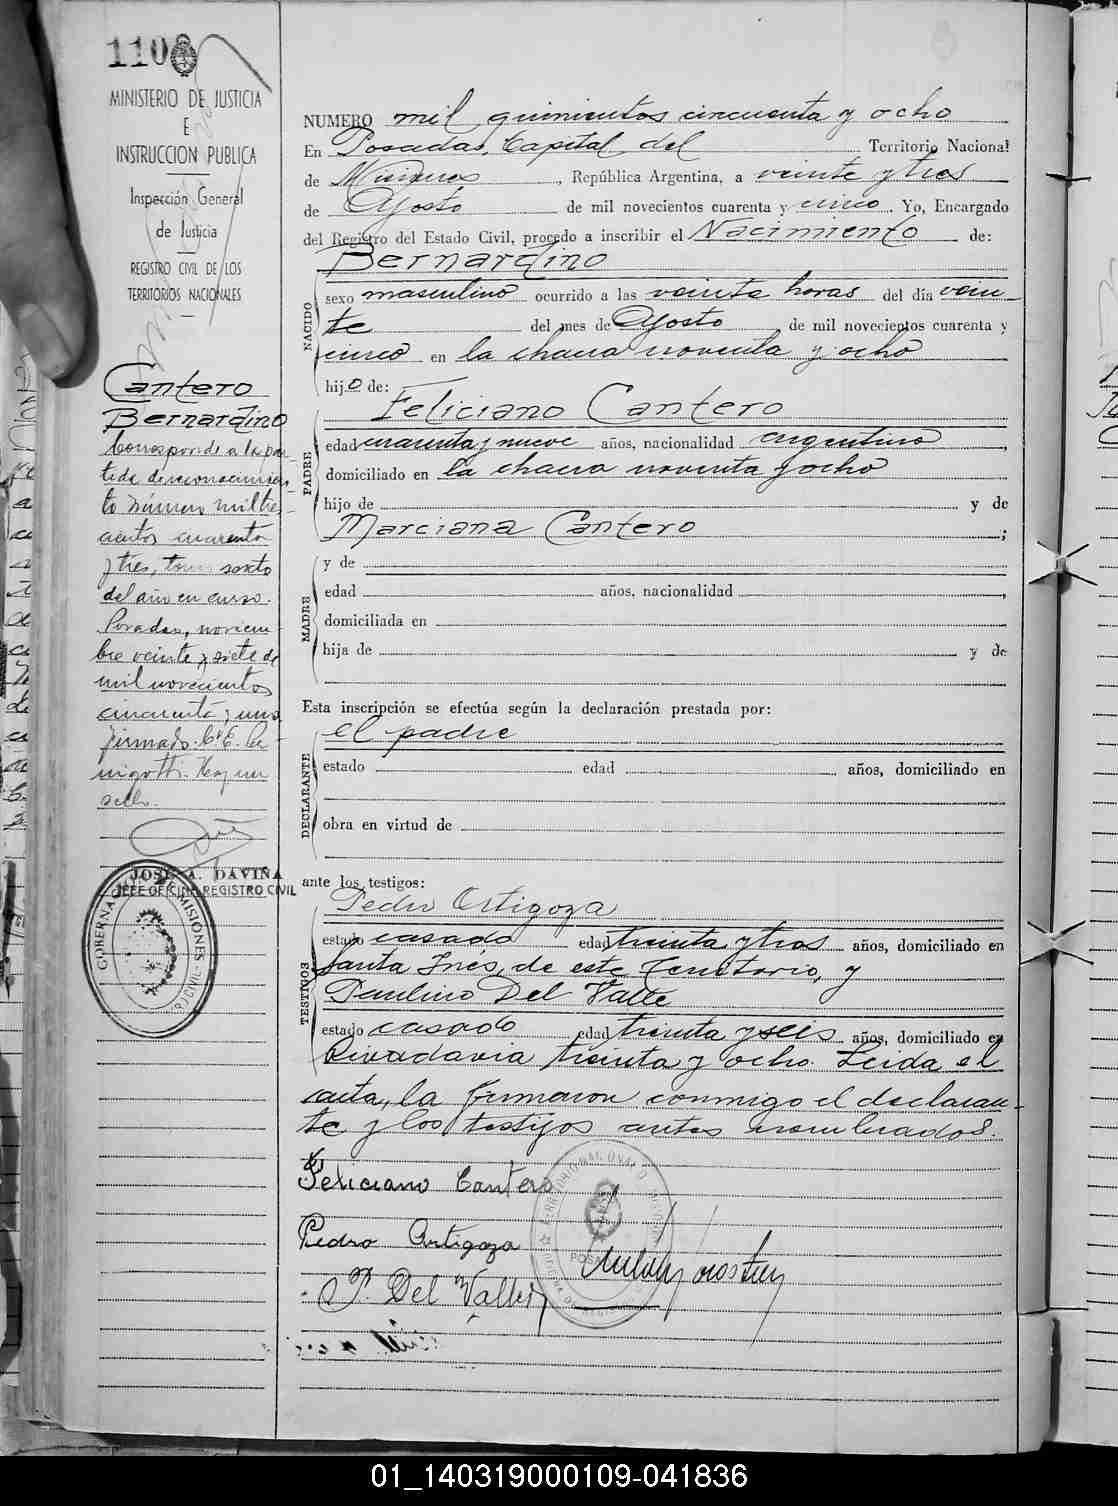 110
MINISTERIO DE JUSTICIA
E
INSTRUCCION PUBLICA
Inspección General
de Justicia
REGISTRO CIVIL DE LOS
TERRITORIOS NACIONALES
Cantero
Bernardino
Corresponde a la par-
tida de reconocimien-
to número mil tres-
cientos cuarenta
y tres, tomo sexto
del año en curso.
Posadas, noviem-
bre veinte y siete de
mil novecientos
cincuenta y uno
firmado: C. E.
Hay un
sello.
JOSE A. DAVIÑA
JEFE OFICINA REGISTRO CIVIL
GOBERNA MISIONES
NUMERO mil quinientos cincuenta y ocho
En Posadas, Capital del Territorio Nacional
de Misiones, República Argentina, a veinte y tres
de Agosto de mil novecientos cuarenta y cinco. Yo, Encargado
del Registro del Estado Civil, procedo a inscribir el Nacimiento de:
Bernardino
NACIDO
sexo masculino ocurrido a las veinte horas del día vein-
te del mes de Agosto de mil novecientos cuarenta y
cinco en la chacra noventa y ocho
hijo de:
Feliciano Cantero
PADRE
edad cuarenta y nueve años, nacionalidad argentino
domiciliado en la chacra noventa y ocho
hijo de y de
Marciana Cantero ;
MADRE
y de
edad años, nacionalidad ,
domiciliada en
hija de y de
Esta inscripción se efectúa según la declaración prestada por:
el padre
DECLARANTE
estado edad años, domiciliado en
obra en virtud de
ante los testigos:
Pedro Ortigoza
TESTIGOS
estado casado edad treinta y tres años, domiciliado en
Santa Inés, de este Territorio, y
Paulino Del Valle
estado casado edad treinta y seis años, domiciliado en
Rivadavia treinta y ocho. Leida el
acta, la firmaron conmigo el declaran-
te y los testigos antes nombrados.
Feliciano Cantero
Pedro Ortigoza
P. Del Valle
01_140319000109-041836